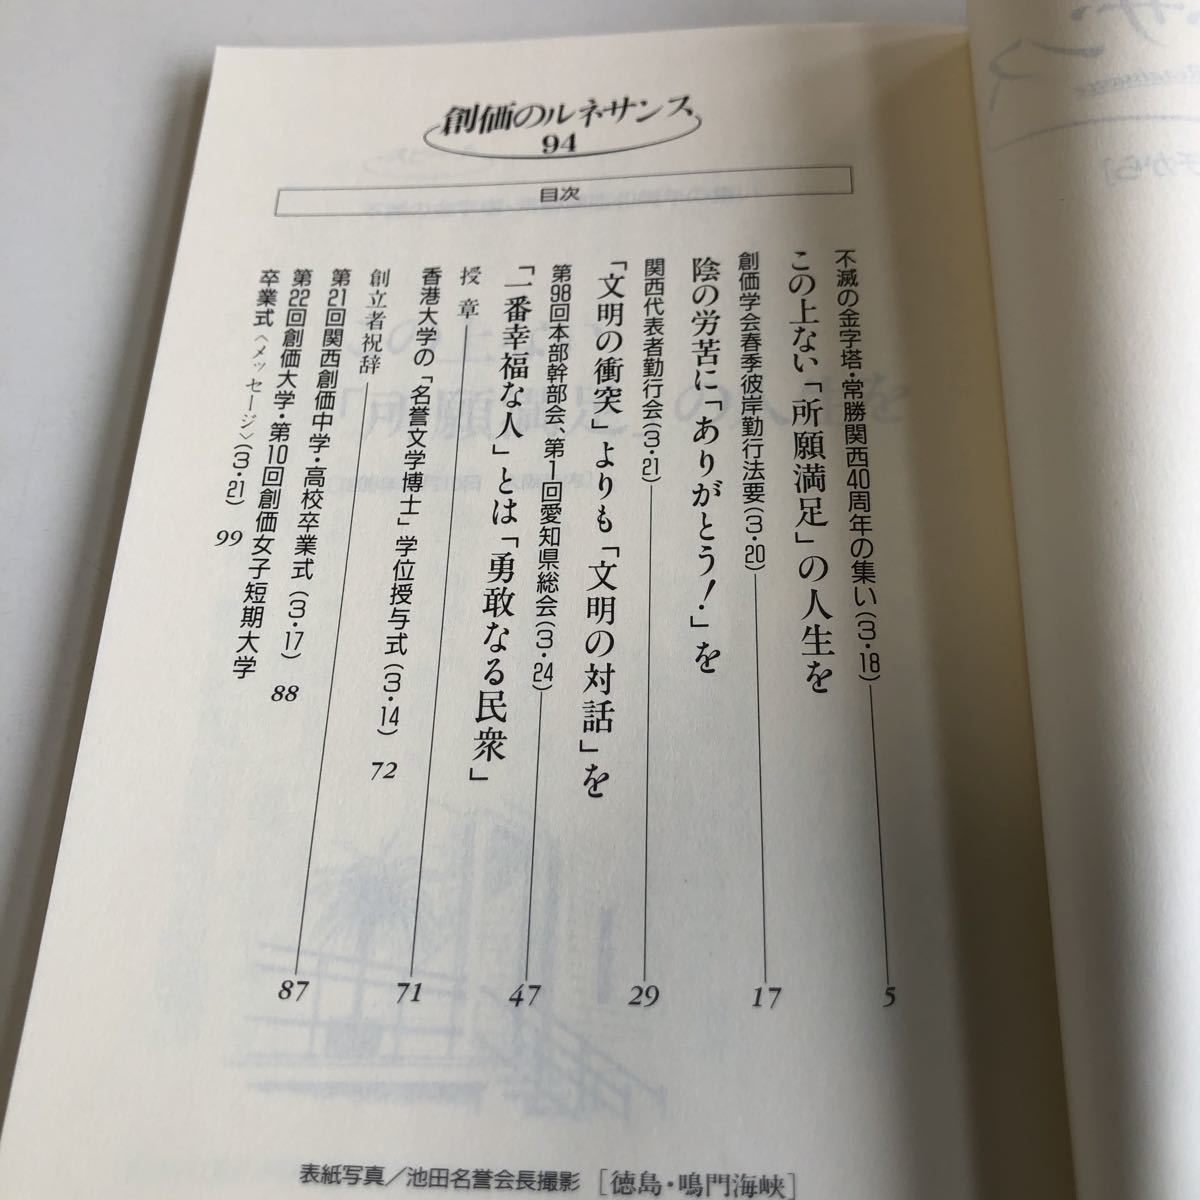 創価のルネサンス
94
目次
不滅の金字塔・常勝関西40周年の集い(3・18)
この上ない「所願満足」の人生を
5
創価学会春季彼岸勤行法要(3・20)
陰の労苦に「ありがとう!」を
17
関西代表者勤行会(3・21)
「文明の衝突」よりも「文明の対話」を
29
第98回本部幹部会、第1回愛知県総会(3・24)
「一番幸福な人」とは「勇敢なる民衆」
47
授章
71
香港大学の「名誉文学博士」学位授与式(3・14)
72
創立者祝辞
87
第21回関西創価中学・高校卒業式(3・17)
88
第22回創価大学・第10回創価女子短期大学
卒業式〈メッセージ〉(3・21)
99
表紙写真/池田名誉会長撮影 [徳島・鳴門海峡]